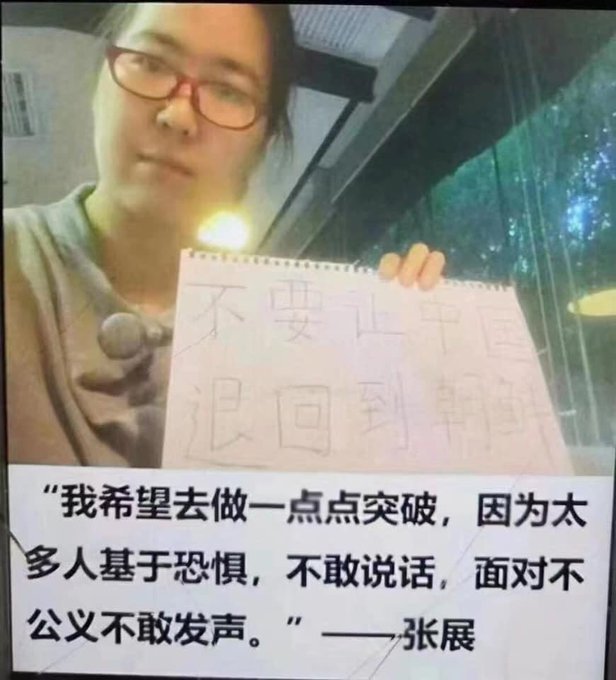 不要让中国
退回到朝鲜
“我希望去做一点点突破，因为太
多人基于恐惧，不敢说话，面对不
公义不敢发声。”——张展